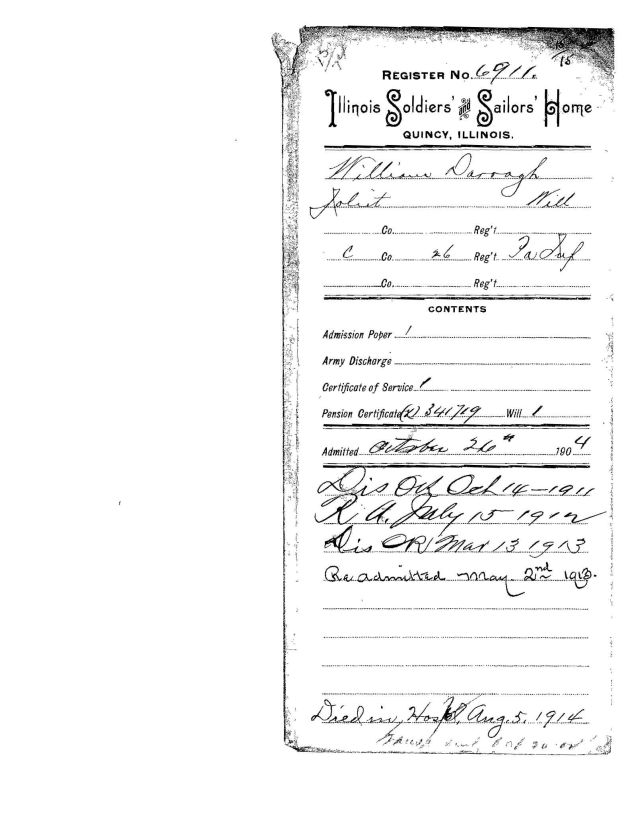 15
REGISTER NO. 6911.
Illinois Soldiers' and Sailors' Home
QUINCY, ILLINOIS.
William Darragh
Joliet Will
Co. Reg't
C Co. 26 Reg't Pa Inf
Co. Reg't
CONTENTS
Admission Paper 1
Army Discharge
Certificate of Service 1
Pension Certificate (2) 341719 Will 1
Admitted October 26th 1904
Dis OR Oct 14-1911
R A. July 15-1912
Dis OR Mar 13 1913
Re admitted May 2nd 1913.
Died in Hospl, Aug. 5, 1914